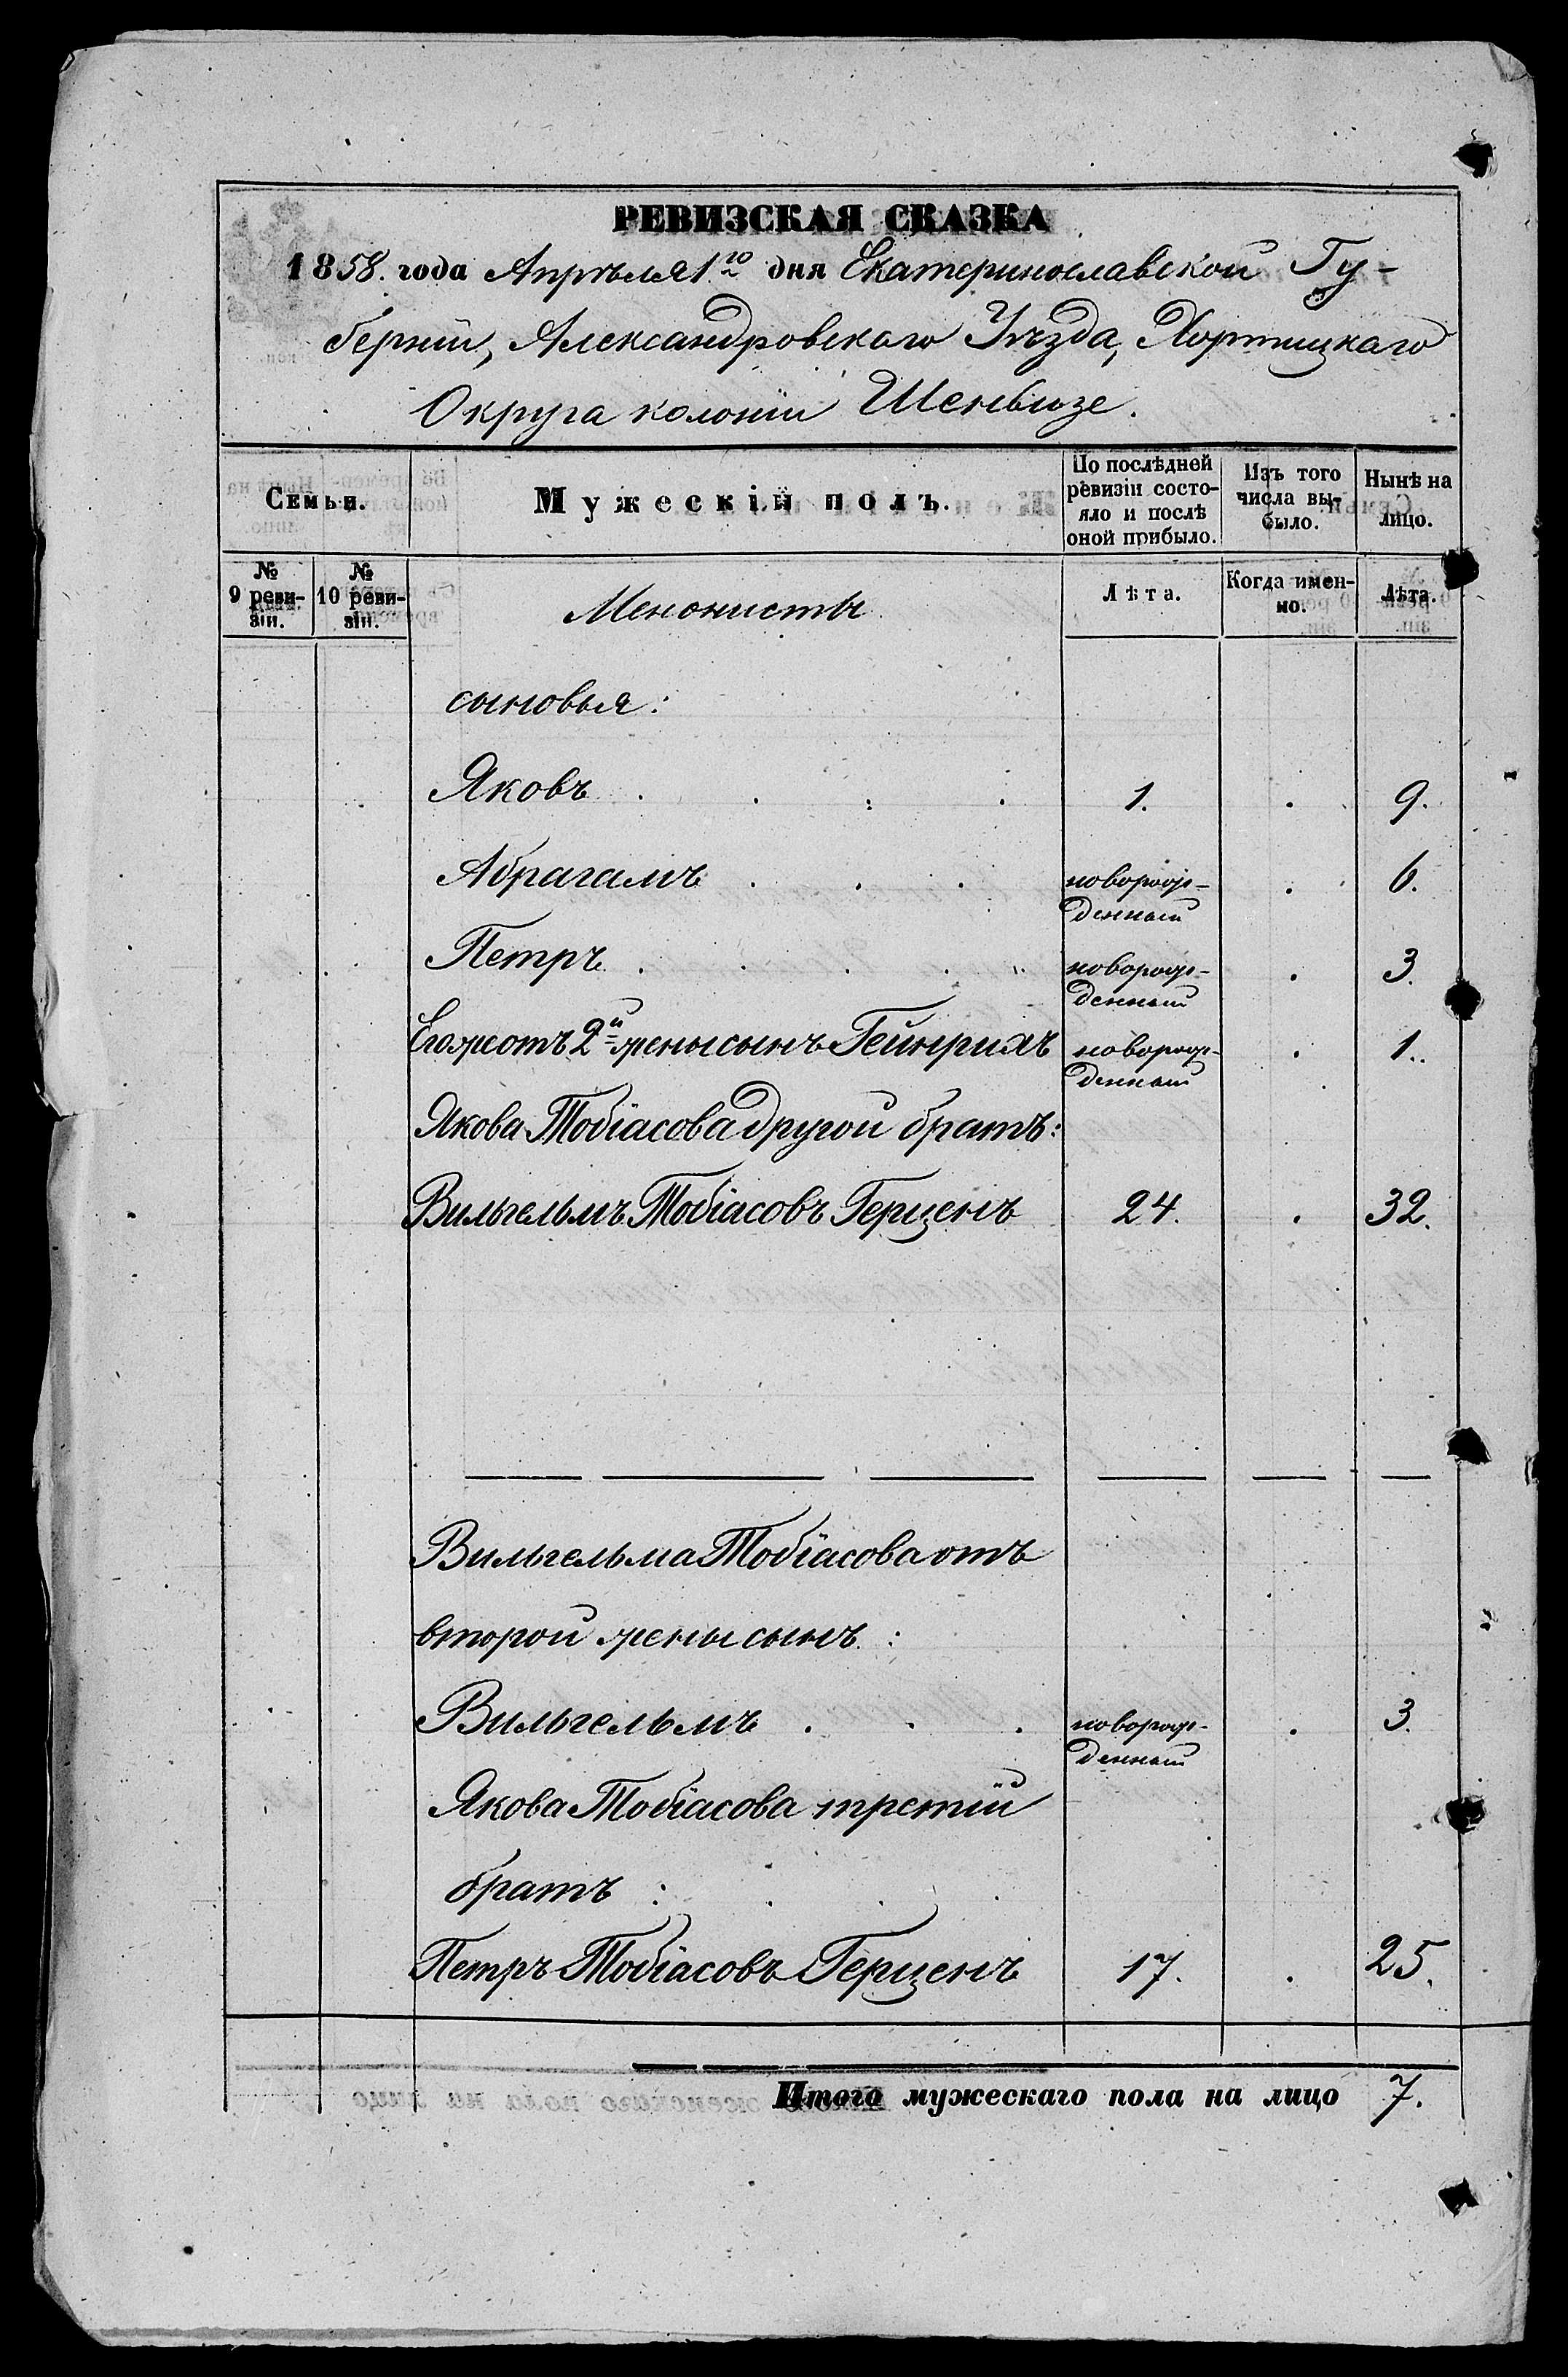 РЕВИЗСКАЯ СКАЗКА
1858. года Апрѣля 1го дня Екатеринославской Гу-
берніи, Александровскаго Уѣзда, Хортицкаго
Округа колоніи Шенвизе.
Семьи.
Мужескій полъ.
По послѣдней ревизіи состо-
яло и послѣ оной прибыло.
Изъ того числа вы-
было.
Нынѣ на лицо.
№ 9 реви-
зіи.
№ 10 реви-
зіи.
Менонисты
Лѣта.
Когда имен-
но.
Лѣта.
сыновья:
Яковъ . . . . 1. . 9.
Абрагамъ . . . новорож-
денный . 6.
Петръ . . . . новорож-
денный . 3.
Его же отъ 2й жены сынъ Гейнрихъ новорож-
денный . 1.
Якова Тобіасова другой братъ:
Вильгельмъ Тобіасовъ Герценъ 24. . 32.
Вильгельма Тобіасова отъ
второй жены сынъ:
Вильгельмъ . . . новорож-
денный . 3.
Якова Тобіасова третій
братъ :
Петръ Тобіасовъ Герценъ 17. . 25.
Итого мужескаго пола на лицо 7.